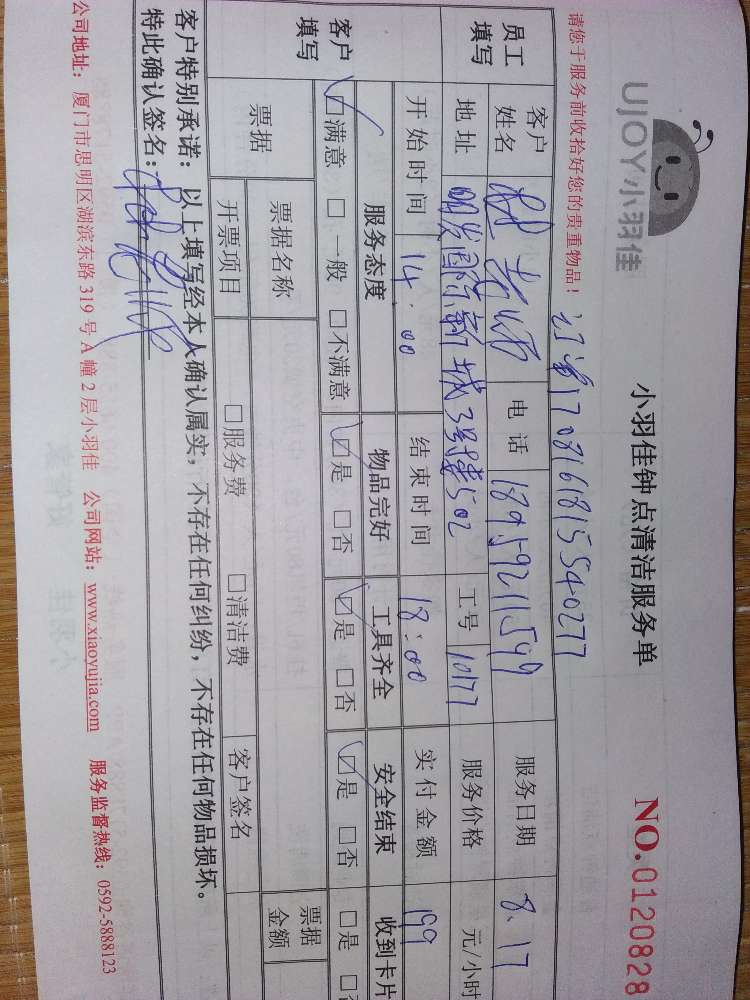 UJOY小羽佳
小羽佳钟点清洁服务单
NO.0120828
请您于服务前收拾好您的贵重物品!
170816815540277
员工填写
客户姓名 电话 18959211599 服务日期 8.17
地址 明发国际新城3号楼502 工号 10177 服务价格 元/小时
开始时间 14:00 结束时间 18:00 实付金额 199
客户填写
服务态度 物品完好 工具齐全 安全结束 收到卡片
☑满意 □一般 □不满意 ☑是 □否 ☑是 □否 ☑是 □否 □是 □否
票据 票据名称 票据金额
开票项目 □服务费 □清洁费 客户签名
客户特别承诺:以上填写经本人确认属实,不存在任何纠纷,不存在任何物品损坏。
特此确认签名:
公司地址:厦门市思明区湖滨东路319号A幢2层小羽佳 公司网站:www.xiaoyujia.com 服务监督热线:0592-5888123